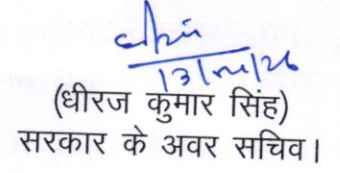 (धीरज कुमार सिंह)
सरकार के अवर सचिव।